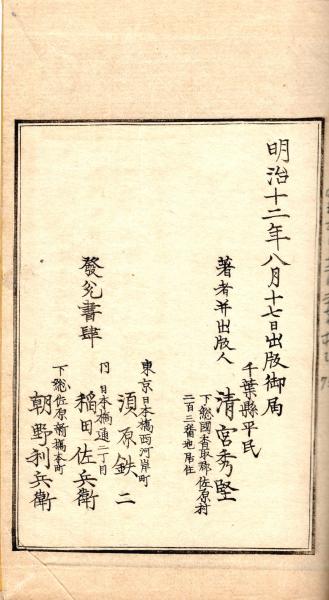 明治十二年八月十七日出版御届
千葉縣平民
著者并出版人 清宮秀堅
下總國香取郡佐原村
二百三番地居住
發兌書肆
東京日本橋西河岸町
須原鉄二
同日本橋通二丁目
稲田佐兵衛
下總佐原新橋本町
朝野利兵衛